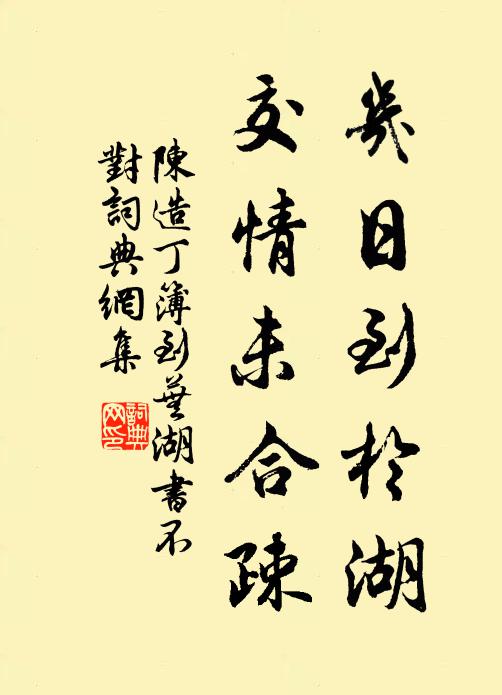 幾日到於湖
交情未合疎
陳造丁簿到蕪湖書不
對詞典網集
詞典网印